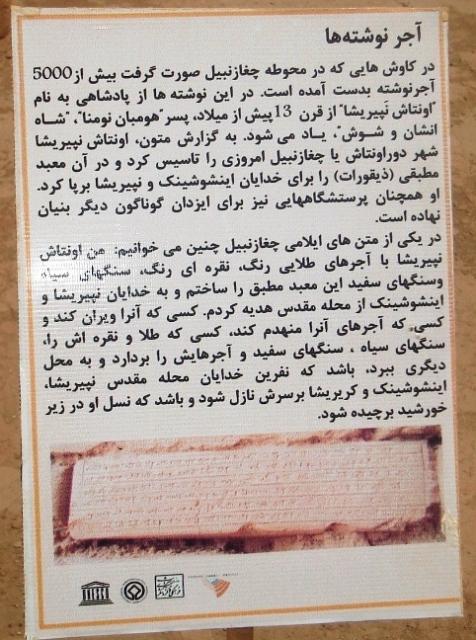 آجر نوشته‌ها
در کاوش هایی که در محوطه چغازنبیل صورت گرفت بیش از 5000
آجرنوشته بدست آمده است. در این نوشته ها از پادشاهی به نام
"اونتاش نَپیریشا" از قرن 13پیش از میلاد، پسر"هومبان نومنا"، "شاه
انشان و شوش"، یاد می شود. به گزارش متون، اونتاش نپیریشا
شهر دوراونتاش یا چغازنبیل امروزی را تاسیس کرد و در آن معبد
مطبقی (ذیقورات) را برای خدایان اینشوشینک و نپیریشا برپا کرد.
او همچنان پرستشگاههایی نیز برای ایزدان گوناگون دیگر بنیان
نهاده است.
در یکی از متن های ایلامی چغازنبیل چنین می خوانیم: من اونتاش
نپیریشا با آجرهای طلایی رنگ، نقره ای رنگ، سنگهای سیاه
وسنگهای سفید این معبد مطبق را ساختم و به خدایان نپیریشا و
اینشوشینک از محله مقدس هدیه کردم. کسی که آنرا ویران کند و
کسی که آجرهای آنرا منهدم کند، کسی که طلا و نقره اش را،
سنگهای سیاه ، سنگهای سفید و آجرهایش را بردارد و به محل
دیگری ببرد، باشد که نفرین خدایان محله مقدس نپیریشا،
اینشوشینک و کریریشا برسرش نازل شود و باشد که نسل او در زیر
خورشید برچیده شود.